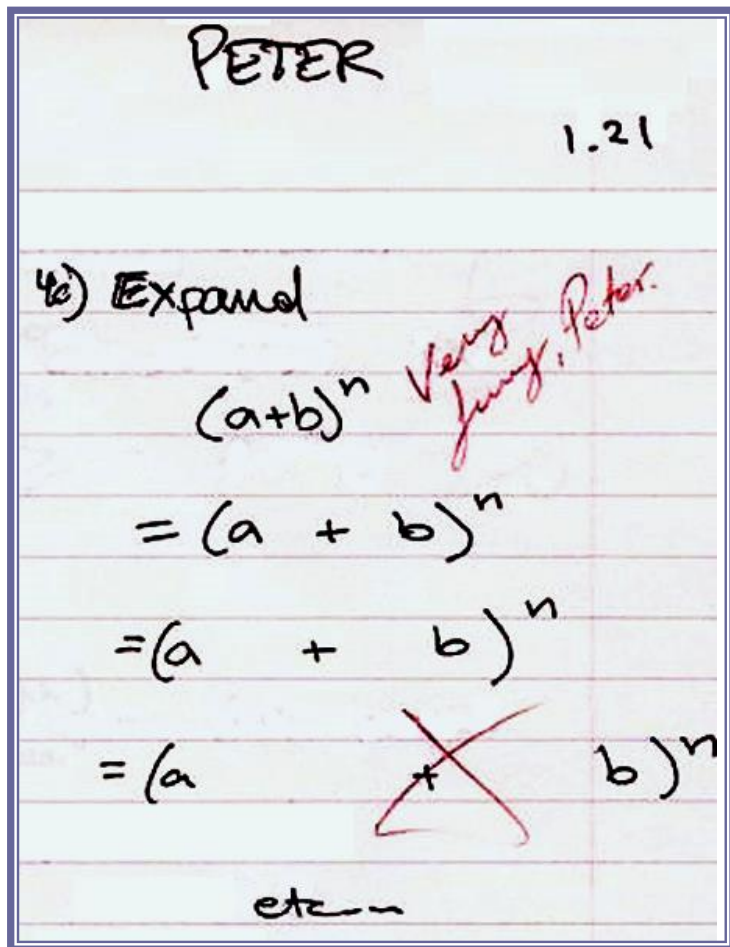 PETER
1.21
4c) Expand
Very
funny, Peter.
(a+b)ⁿ
= (a + b)ⁿ
=(a + b)ⁿ
= (a + b)ⁿ
etc...